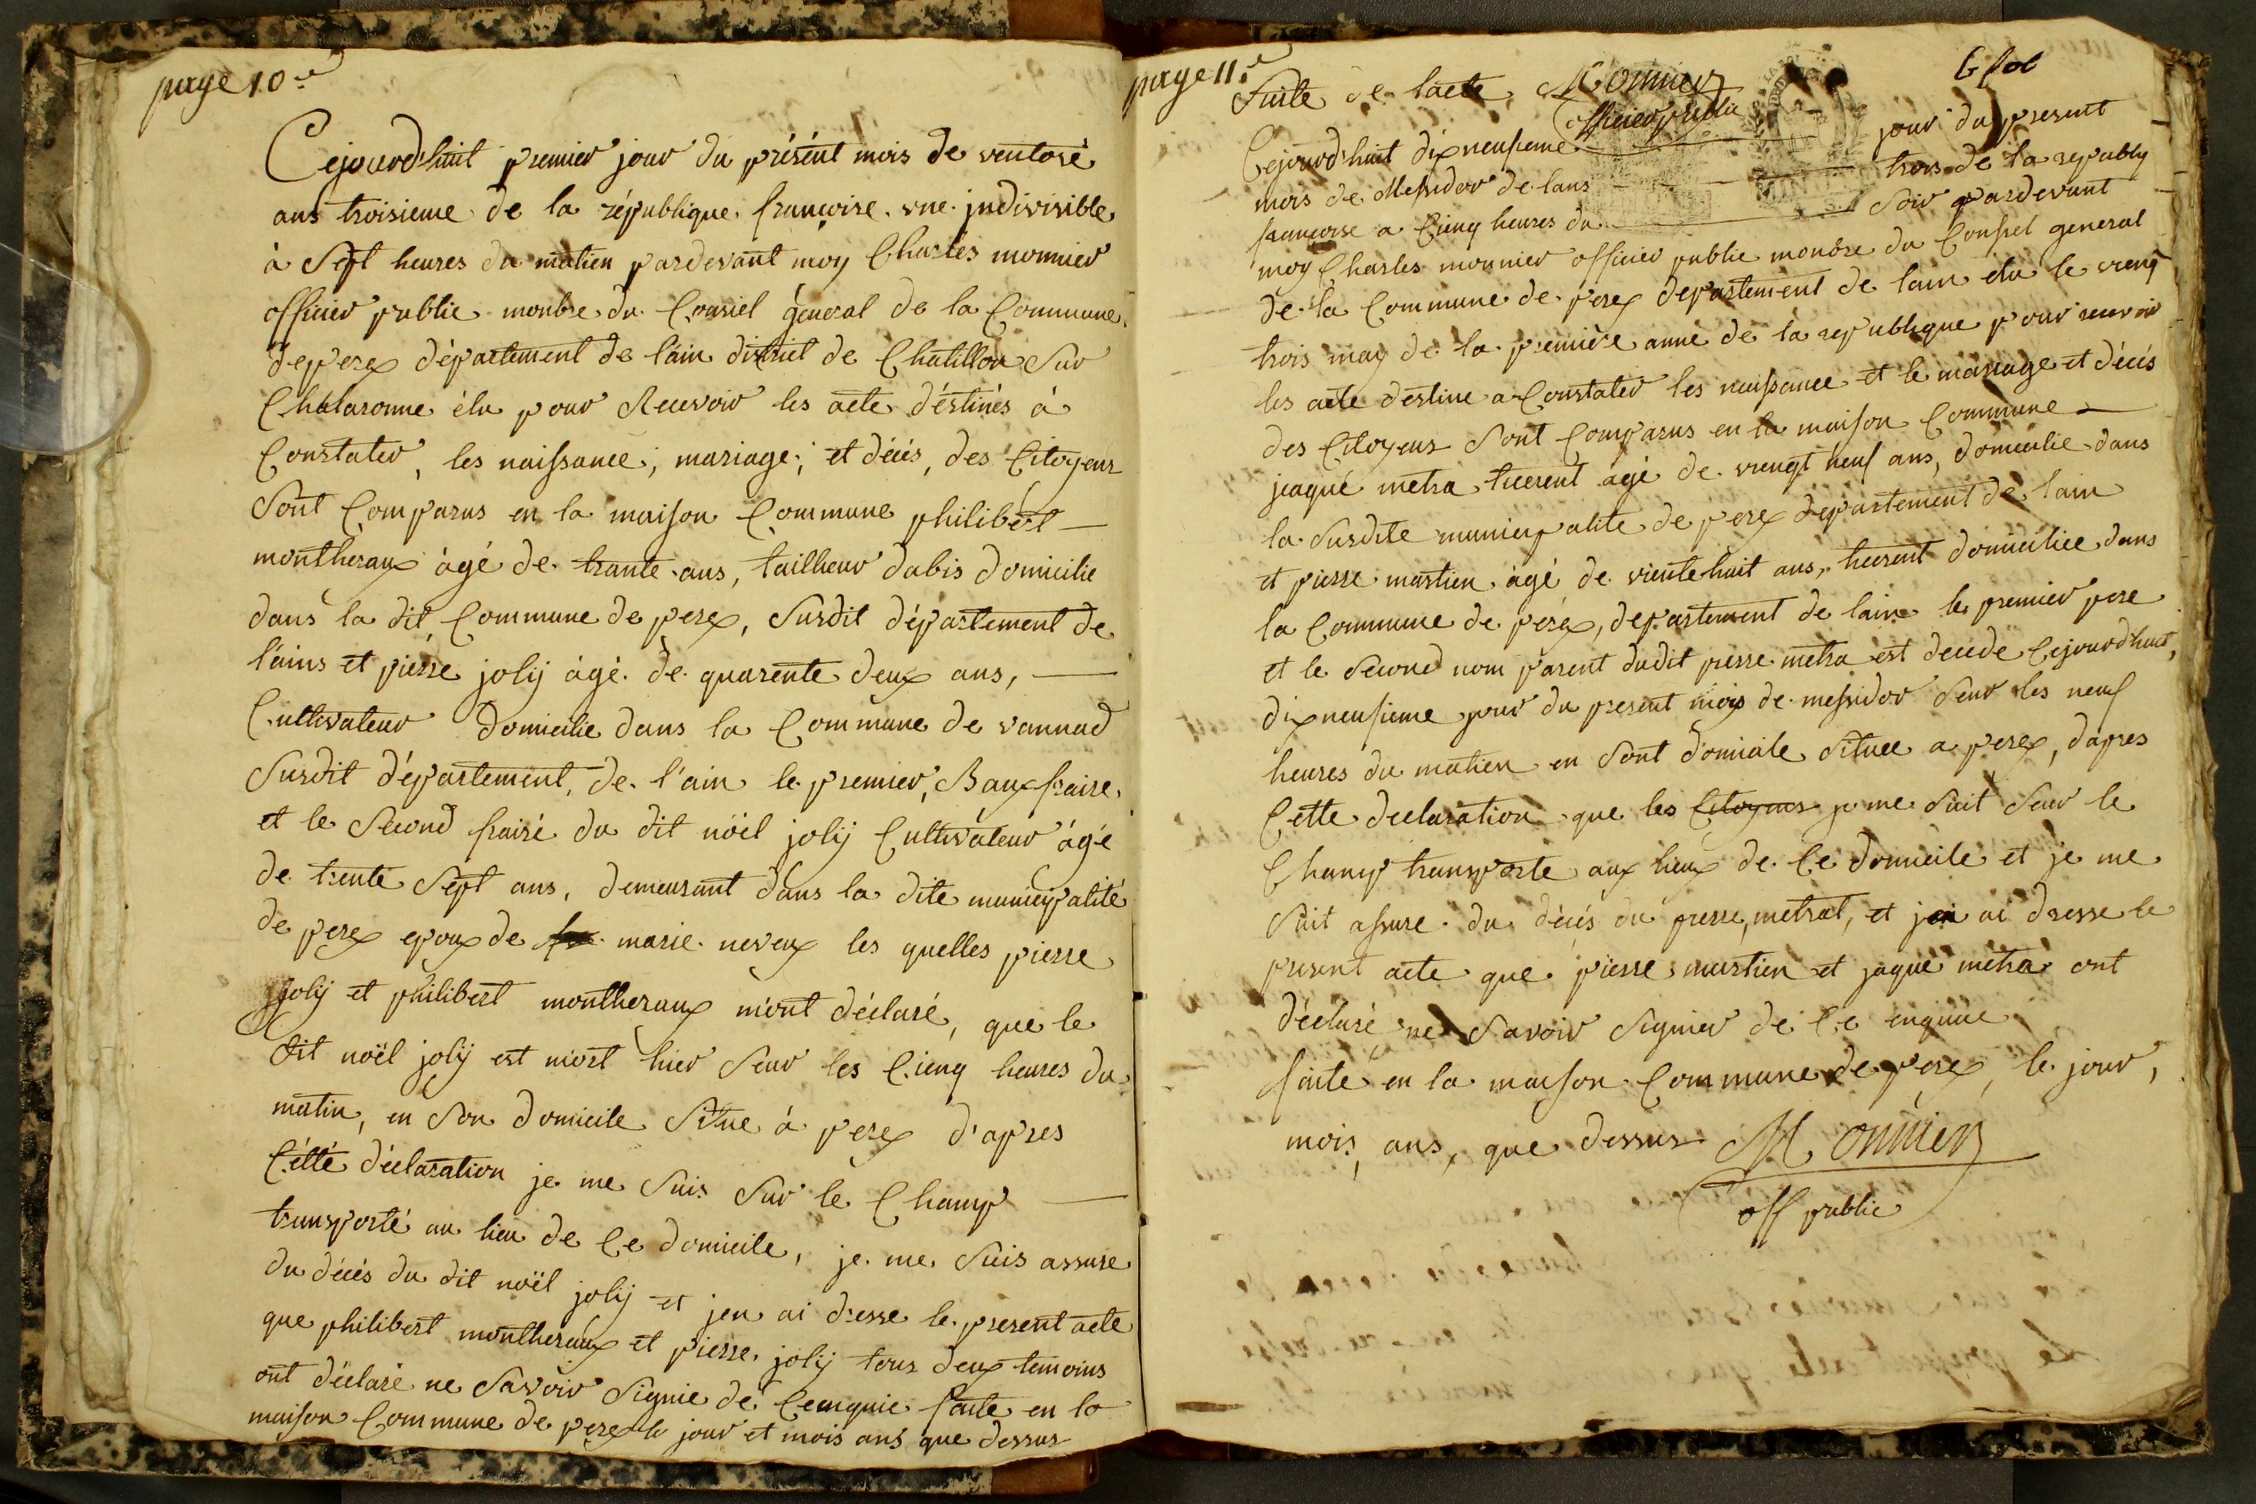 page 10.e
Cejourd'huit premier jour du présént mois de ventosé
ans troisieme de la république françoise. vne. jndivisible
à Sept heures du matien pardevant moy Charlés monnier
officier public monbre du Consiel géneral de la Commune
deperex département de láin district de Chatillon Sur
Chalaronne élu pour Recevoir les acte déstinés à
Constater, les naissance; mariage; et décés, des Citoyens
Sont Comparus en la maison Commune philibért
montheraux àgé de trante ans, tailheur dabis domicilie
dans la dit Commune de perex, Susdit département de
l'ains et pierre jolÿ àgé de quarente deux ans,
Cultivateur domicilie dans la Commune de vannad
Susdit département, de l'ain le premier, Baux fraire
et le Second frairé du dit nöèl jolÿ Cultivateur àgé
de trente Sept ans, demeurant dans la dite municipalité
de perex epoux de marie neveux les quelles pierre
jolÿ et philibert montheraux m'ont déclaré, que le
dit noël jolÿ est mort hier Seur les Cienq heures du
matin, en Son domicile Situe à perex d'apres
Cétté déclaration je me Suis Sur le Champ
transporté au lieu de Ce domicile, je me Suis assure
du décés du dit noël jolÿ et jen ai dresse le present acte
que philibert montheraux et pierre jolÿ tous deux temoins
ont déclaré ne Savoir Signie de Ceanquie faite en la
maison Commune de perex le jour et mois ans que dessus
page 11.e
Suite de lacte Monnier
officier public
Cejourd'huit dixneusieme jour du present
mois de Messidor de lans trois de la republq
françoise a Cienq heures du Soir pardevant
moy Charles monnier officier public monbre du Conseil general
de la Commune de perex departement de lain élu le vienq
trois may de la première anné de la republique pour recevoir
les acte destine a Constater les naissance et le mariage et décés
des Citoyens Sont Comparus en la maison Commune
jeaque metra ticerent àgé de viengt neuf ans, domicilie dans
la Susdite municipalite de perex departement de lain
et pierre martien àgé de viente huit ans, domiciliee dans
la Commune de perex, departement de lain le premier pere
et le Second nom parent dudit pierre metra est decede Cejourdhuit,
dixneusieme jour du present mois de messidor Seur les neuf
heures du matien en Sont domicile Situee a perex, dapres
Cette declaration que les Citoyens je me Suit Seur le
Champ transporte aux lieux de Ce domicile et je me
Suit assure du décés du pierre, metrat, et jen ai dresse le
present acte que pierre martien et jaque métra ont
déclaré ne Savoir Signier de Ce enquiue
faite en la maison Commune de perex, le jour,
mois, ans, que dessus Monnier
off public